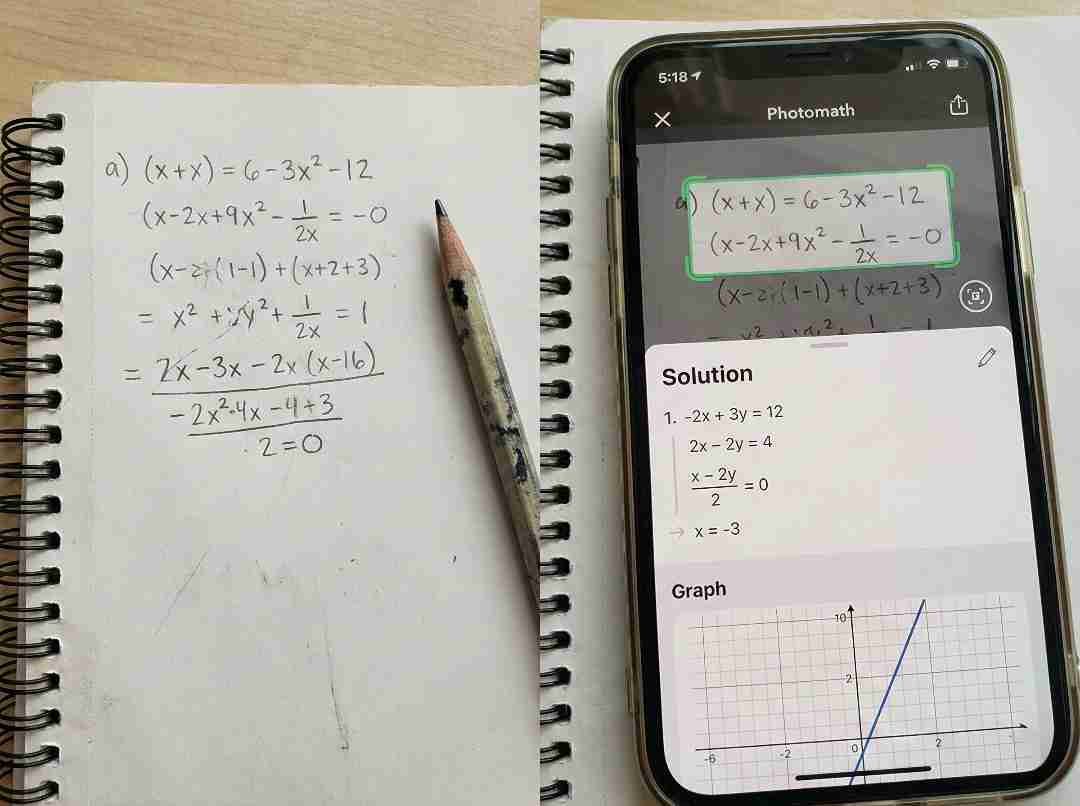 a) (x+x) = 6-3x²-12
(x-2x+9x² - 1/2x = -0
(x- (1-1) + (x+2+3)
= x² + y² + 1/2x = 1
= 2x-3x-2x (x-16)
-2x²·4x-4+3
2=0
5:18
Photomath
a) (x+x) = 6-3x²-12
(x-2x+9x² - 1/2x = -0
(x- (1-1) + (x+2+3)
Solution
1. -2x + 3y = 12
2x - 2y = 4
x - 2y / 2 = 0
→ x = -3
Graph
10
2
-6 -2 0 2